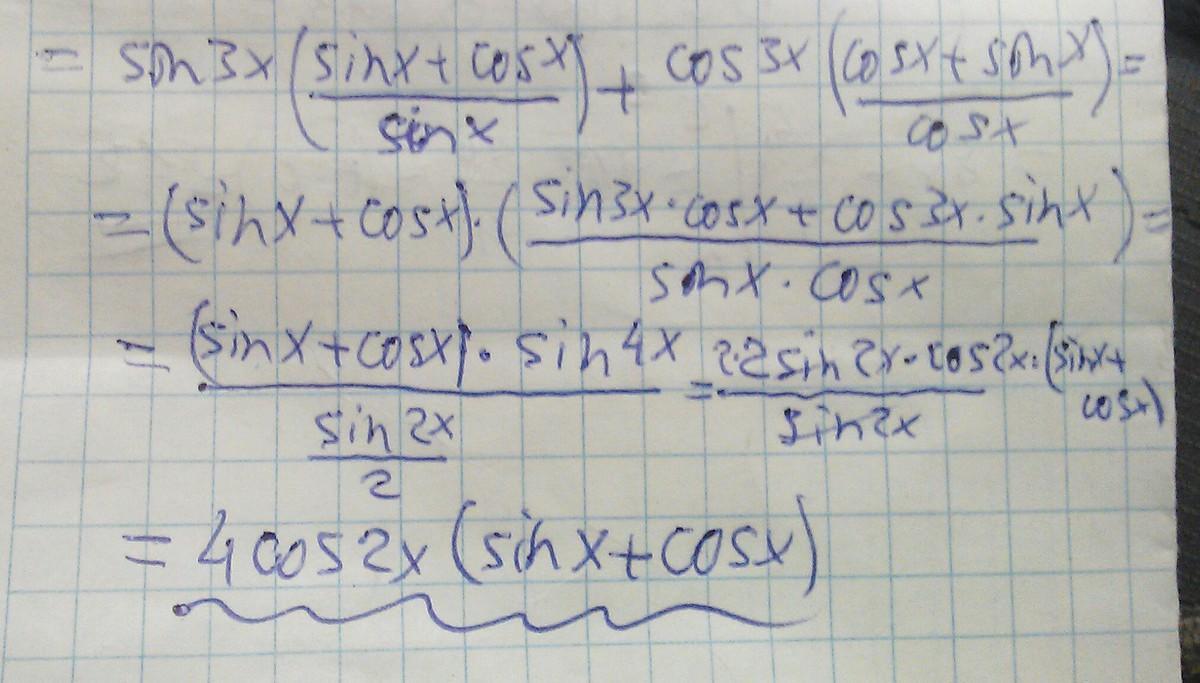 = sin3x (sinx + cosx / sinx) + cos3x (cosx + sinx / cosx) =
= (sinx + cosx) · (sin3x · cosx + cos3x · sinx / sinx · cosx) =
= (sinx + cosx) · sin4x / sin2x / 2 = 2·2sin2x · cos2x · (sinx + cosx) / sin2x
= 4cos2x (sinx + cosx)